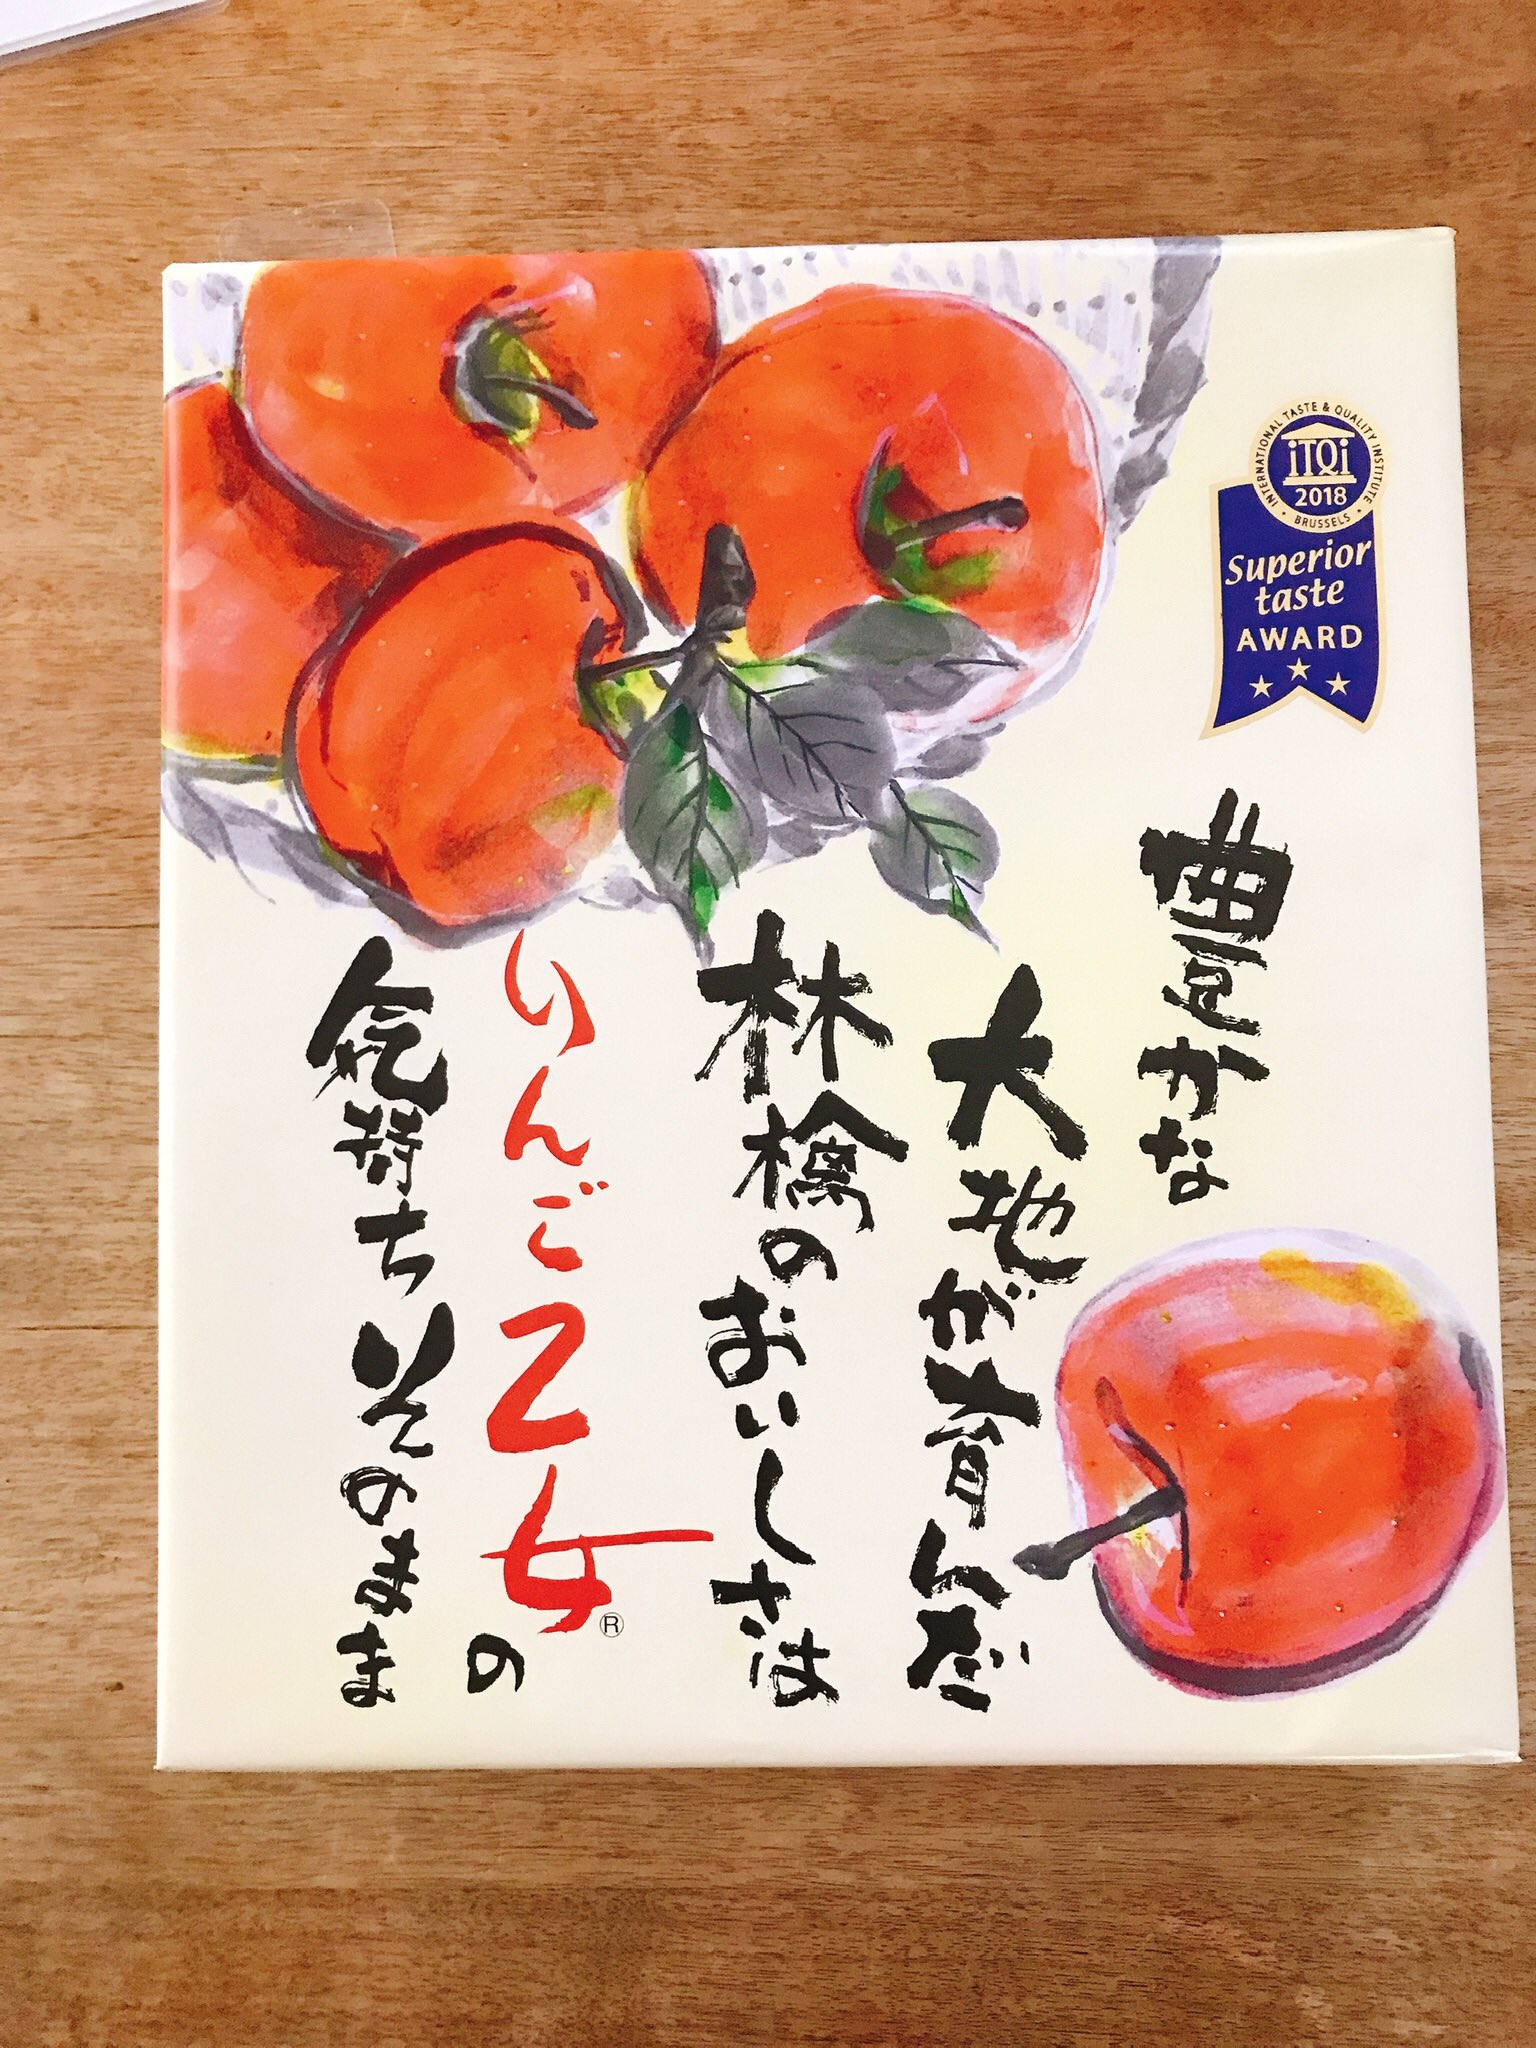 INTERNATIONAL TASTE & QUALITY INSTITUTE
iTQi
2018
• BRUSSELS •
Superior
taste
AWARD
豊かな
大地が育んだ
林檎のおいしさは
りんご乙女®の
気持ちそのまま